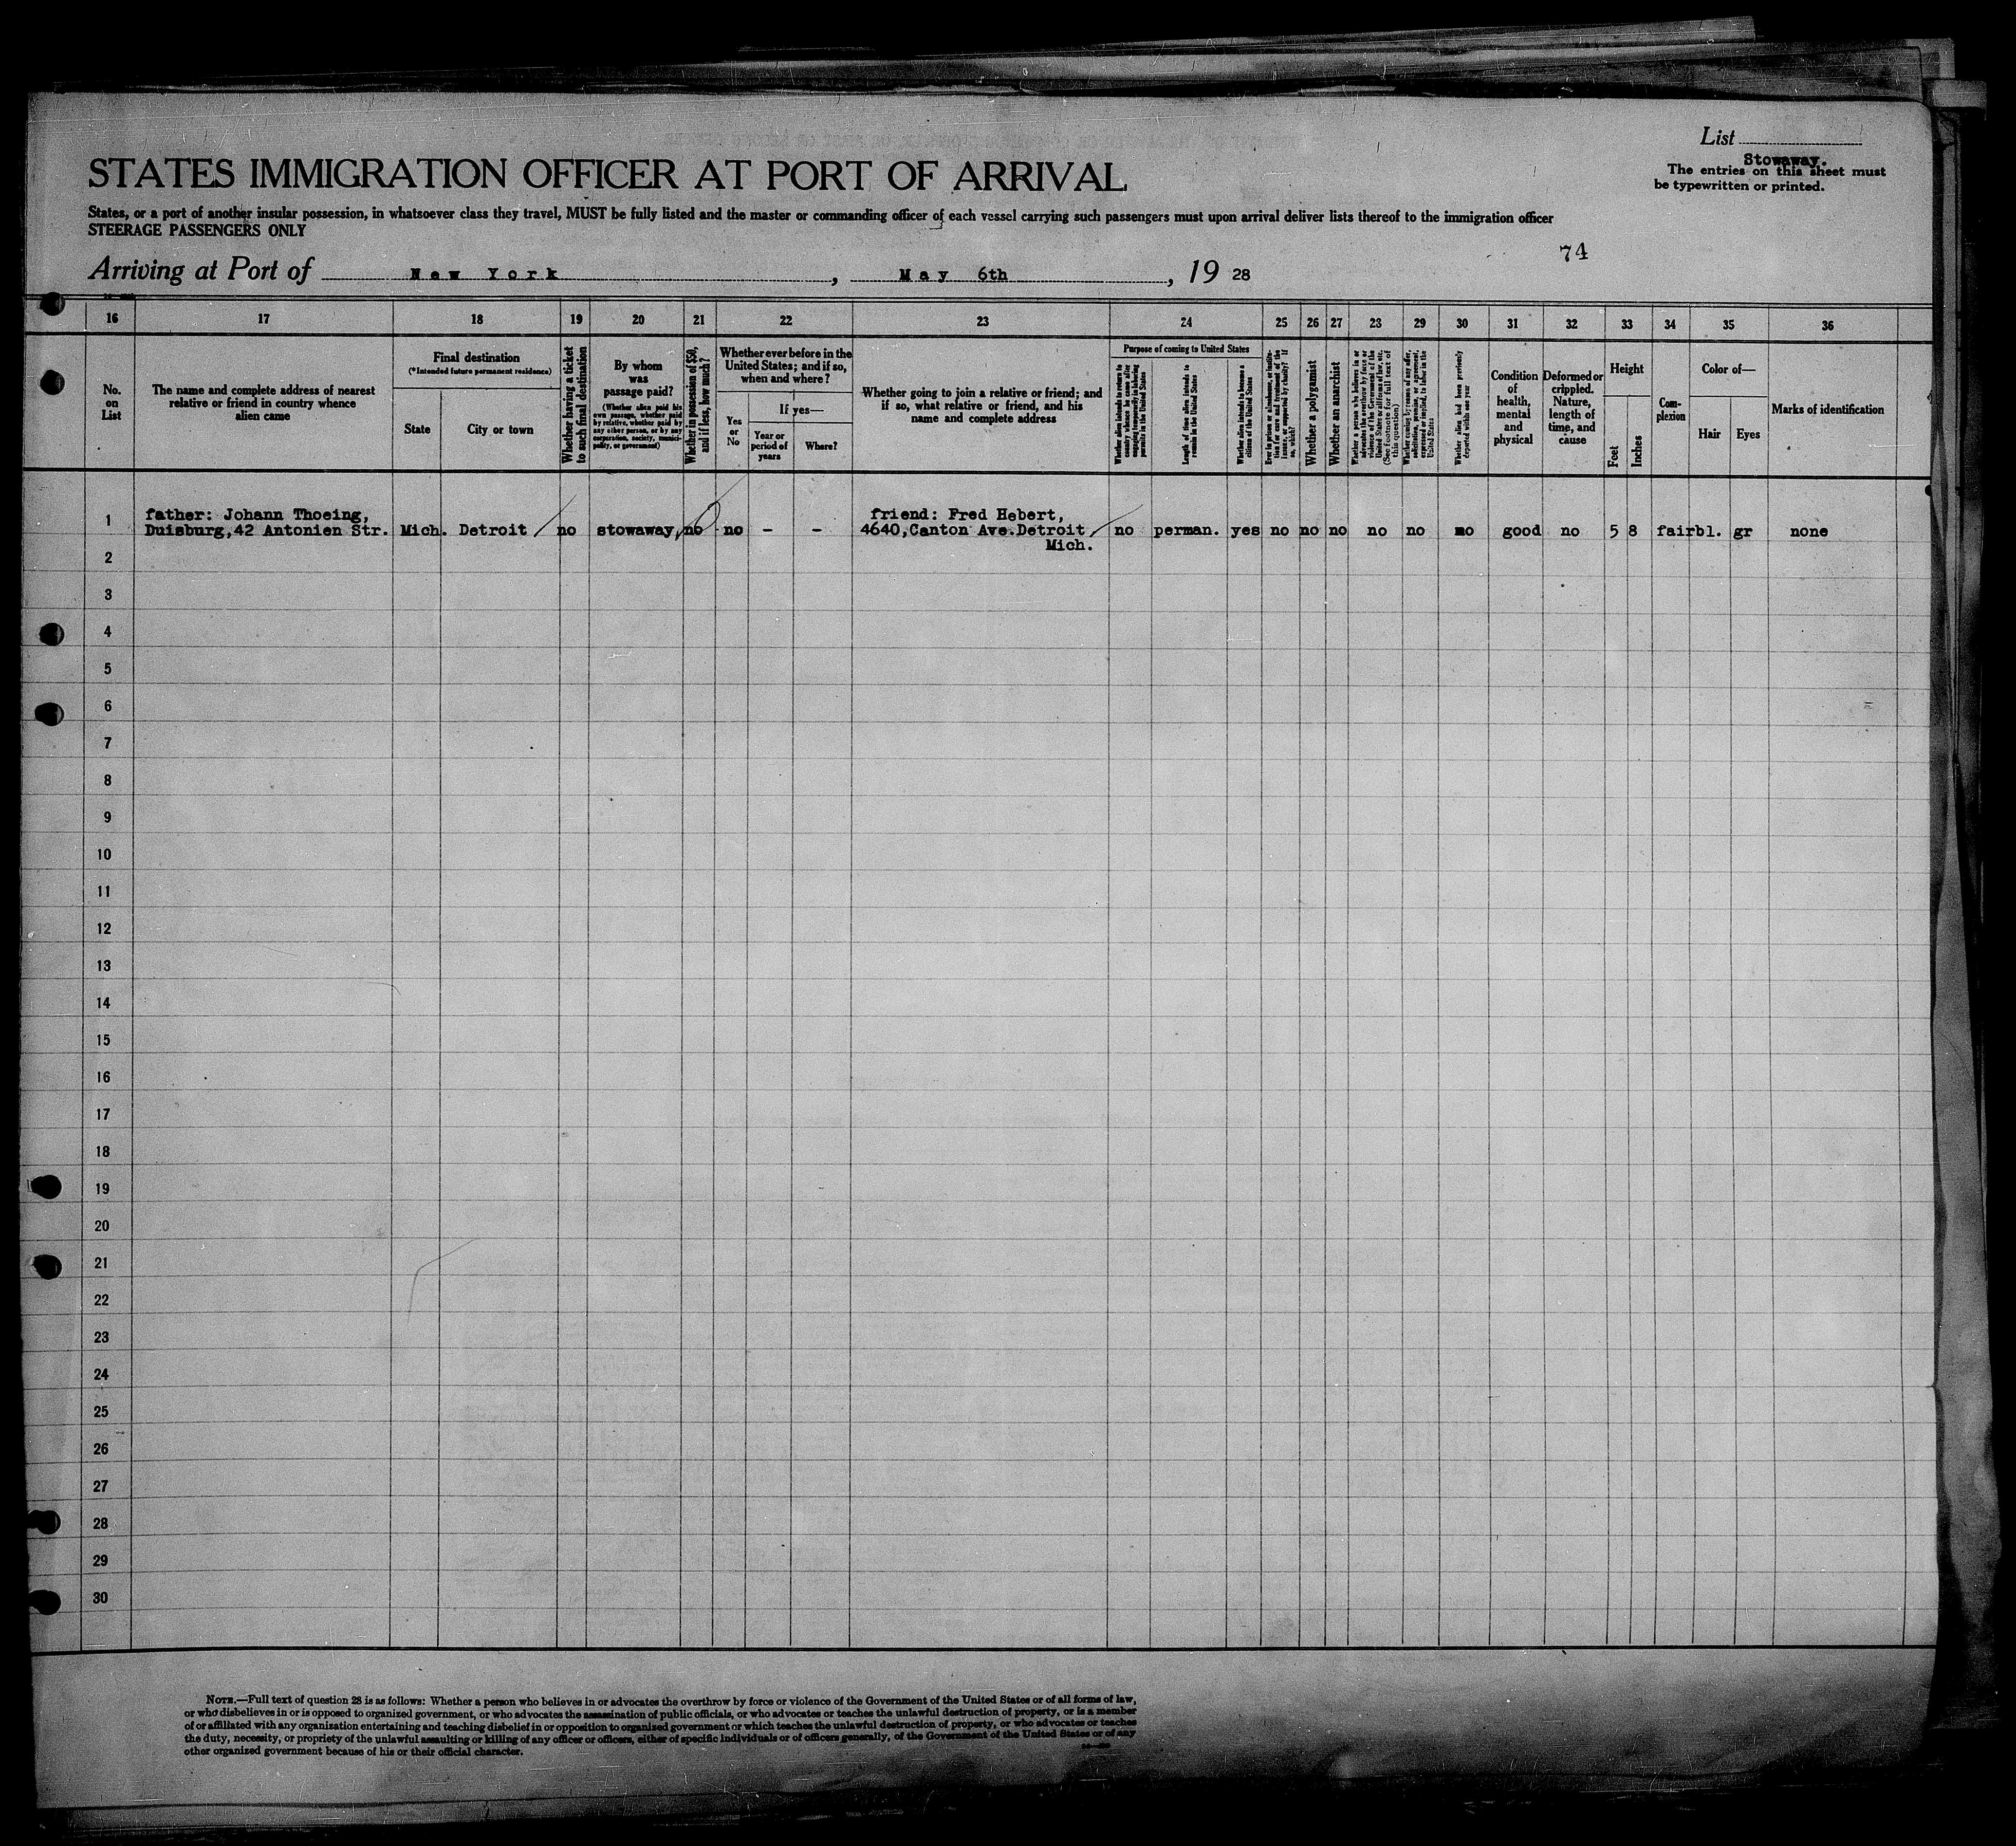 List
Stowaway.
The entries on this sheet must
be typewritten or printed.
STATES IMMIGRATION OFFICER AT PORT OF ARRIVAL
States, or a port of another insular possession, in whatsoever class they travel, MUST be fully listed and the master or commanding officer of each vessel carrying such passengers must upon arrival deliver lists thereof to the immigration officer
STEERAGE PASSENGERS ONLY
74
Arriving at Port of New York, May 6th, 19 28
16 17 18 19 20 21 22 23 24 25 26 27 28 29 30 31 32 33 34 35 36
No.
on
List
The name and complete address of nearest
relative or friend in country whence
alien came
Final destination
(*Intended future permanent residence)
State
City or town
Whether having a ticket
to such final destination
By whom
was
passage paid?
(Whether alien paid his
own passage, whether paid
by relative, whether paid by
any other person, or by any
corporation, society, munici-
pality, or government)
Whether in possession of $50,
and if less, how much?
Whether ever before in the
United States; and if so,
when and where?
Yes
or
No
If yes—
Year or
period of
years
Where?
Whether going to join a relative or friend; and
if so, what relative or friend, and his
name and complete address
Purpose of coming to United States
Whether alien intends to return to
country whence he came after
engaging temporarily in laboring
pursuits in the United States
Length of time alien intends to
remain in the United States
Whether alien intends to become a
citizen of the United States
Ever in prison or almshouse, or institu-
tion for care and treatment of the
insane, or supported by charity? If
so, which?
Whether a polygamist
Whether an anarchist
Whether a person who believes in or
advocates the overthrow by force or
violence of the Government of the
United States or all forms of law, etc.
(See footnote for full text of
this question)
Whether coming by reason of any offer,
solicitation, promise, or agreement,
expressed or implied, to labor in the
United States
Whether alien had been previously
deported within one year
Condition
of
health,
mental
and
physical
Deformed or
crippled.
Nature,
length of
time, and
cause
Height
Feet
Inches
Com-
plexion
Color of—
Hair
Eyes
Marks of identification
father: Johann Thoeing, friend: Fred Hebert,
1 Duisburg,42 Antonien Str. Mich. Detroit no stowaway, no no - - 4640,Canton Ave.Detroit no perman. yes no no no no no no good no 5 8 fair bl. gr none
Mich.
2
3
4
5
6
7
8
9
10
11
12
13
14
15
16
17
18
19
20
21
22
23
24
25
26
27
28
29
30
NOTE.—Full text of question 28 is as follows: Whether a person who believes in or advocates the overthrow by force or violence of the Government of the United States or of all forms of law,
or who disbelieves in or is opposed to organized government, or who advocates the assassination of public officials, or who advocates or teaches the unlawful destruction of property, or is a member
of or affiliated with any organization entertaining and teaching disbelief in or opposition to organized government or which teaches the unlawful destruction of property, or who advocates or teaches
the duty, necessity, or propriety of the unlawful assaulting or killing of any officer or officers, either of specific individuals or of officers generally, of the Government of the United States or of any
other organized government because of his or their official character.